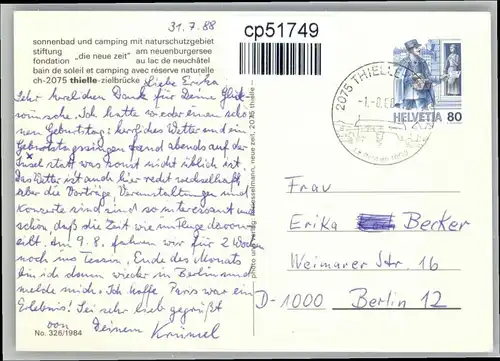 31.7.88
cp51749
sonnenbad und camping mit naturschutzgebiet
stiftung am neuenburgersee
fondation „die neue zeit" au lac de neuchâtel
bain de soleil et camping avec réserve naturelle
ch-2075 thielle-zielbrücke
Liebe Erika!
Sehr herzlichen Dank für Deine Glück-
wünsche. Ich hatte wieder einen schö-
nen Geburtstag: herrliches Wetter und ein
Geburtstagssingen fand abends auf der
Insel statt, was sonst nicht üblich ist.
Das Wetter ist auch hier recht wechselhaft,
aber die Vorträge, Veranstaltungen und
Konzerte sind so interessant und
schön, daß die Zeit wie im Fluge davon-
eilt. Am 9.8. fahren wir für 2 Wochen
noch ins Tessin, Ende des Monats
bin ich dann wieder in Berlin und
melde mich. Ich hoffe, Paris war ein
Erlebnis! Sei sehr lieb gegrüßt
von Deinem Krümel
No. 326/1984
2075 THIELLE
HELVETIA 80
Frau
Erika Berker
Weimarer Str. 16
D-1000 Berlin 12